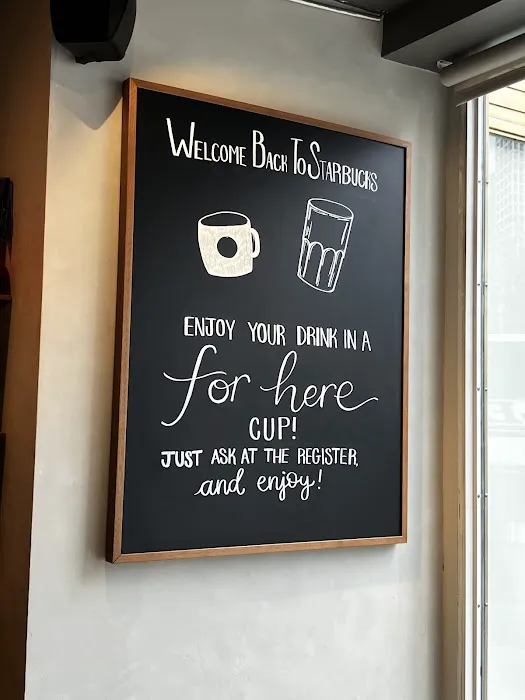 WELCOME BACK TO STARBUCKS
ENJOY YOUR DRINK IN A
for here
CUP!
JUST ASK AT THE REGISTER,
and enjoy!